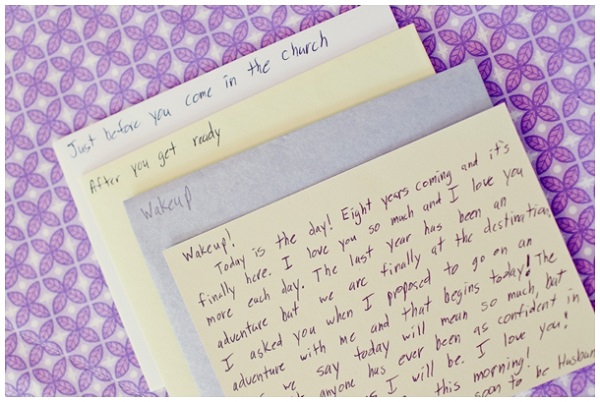 Just before you come in the church
After you get ready
Wakeup
Wakeup!
Today is the day! Eight years coming and it's
finally here. I love you so much and I love you
more each day. The last year has been an
adventure but we are finally at the destination,
I asked you when I proposed to go on an
adventure with me and that begins today! The
we say today will mean so much, but
anyone has ever been as confident in
as I will be. I love you!
this morning!
soon to be Husban